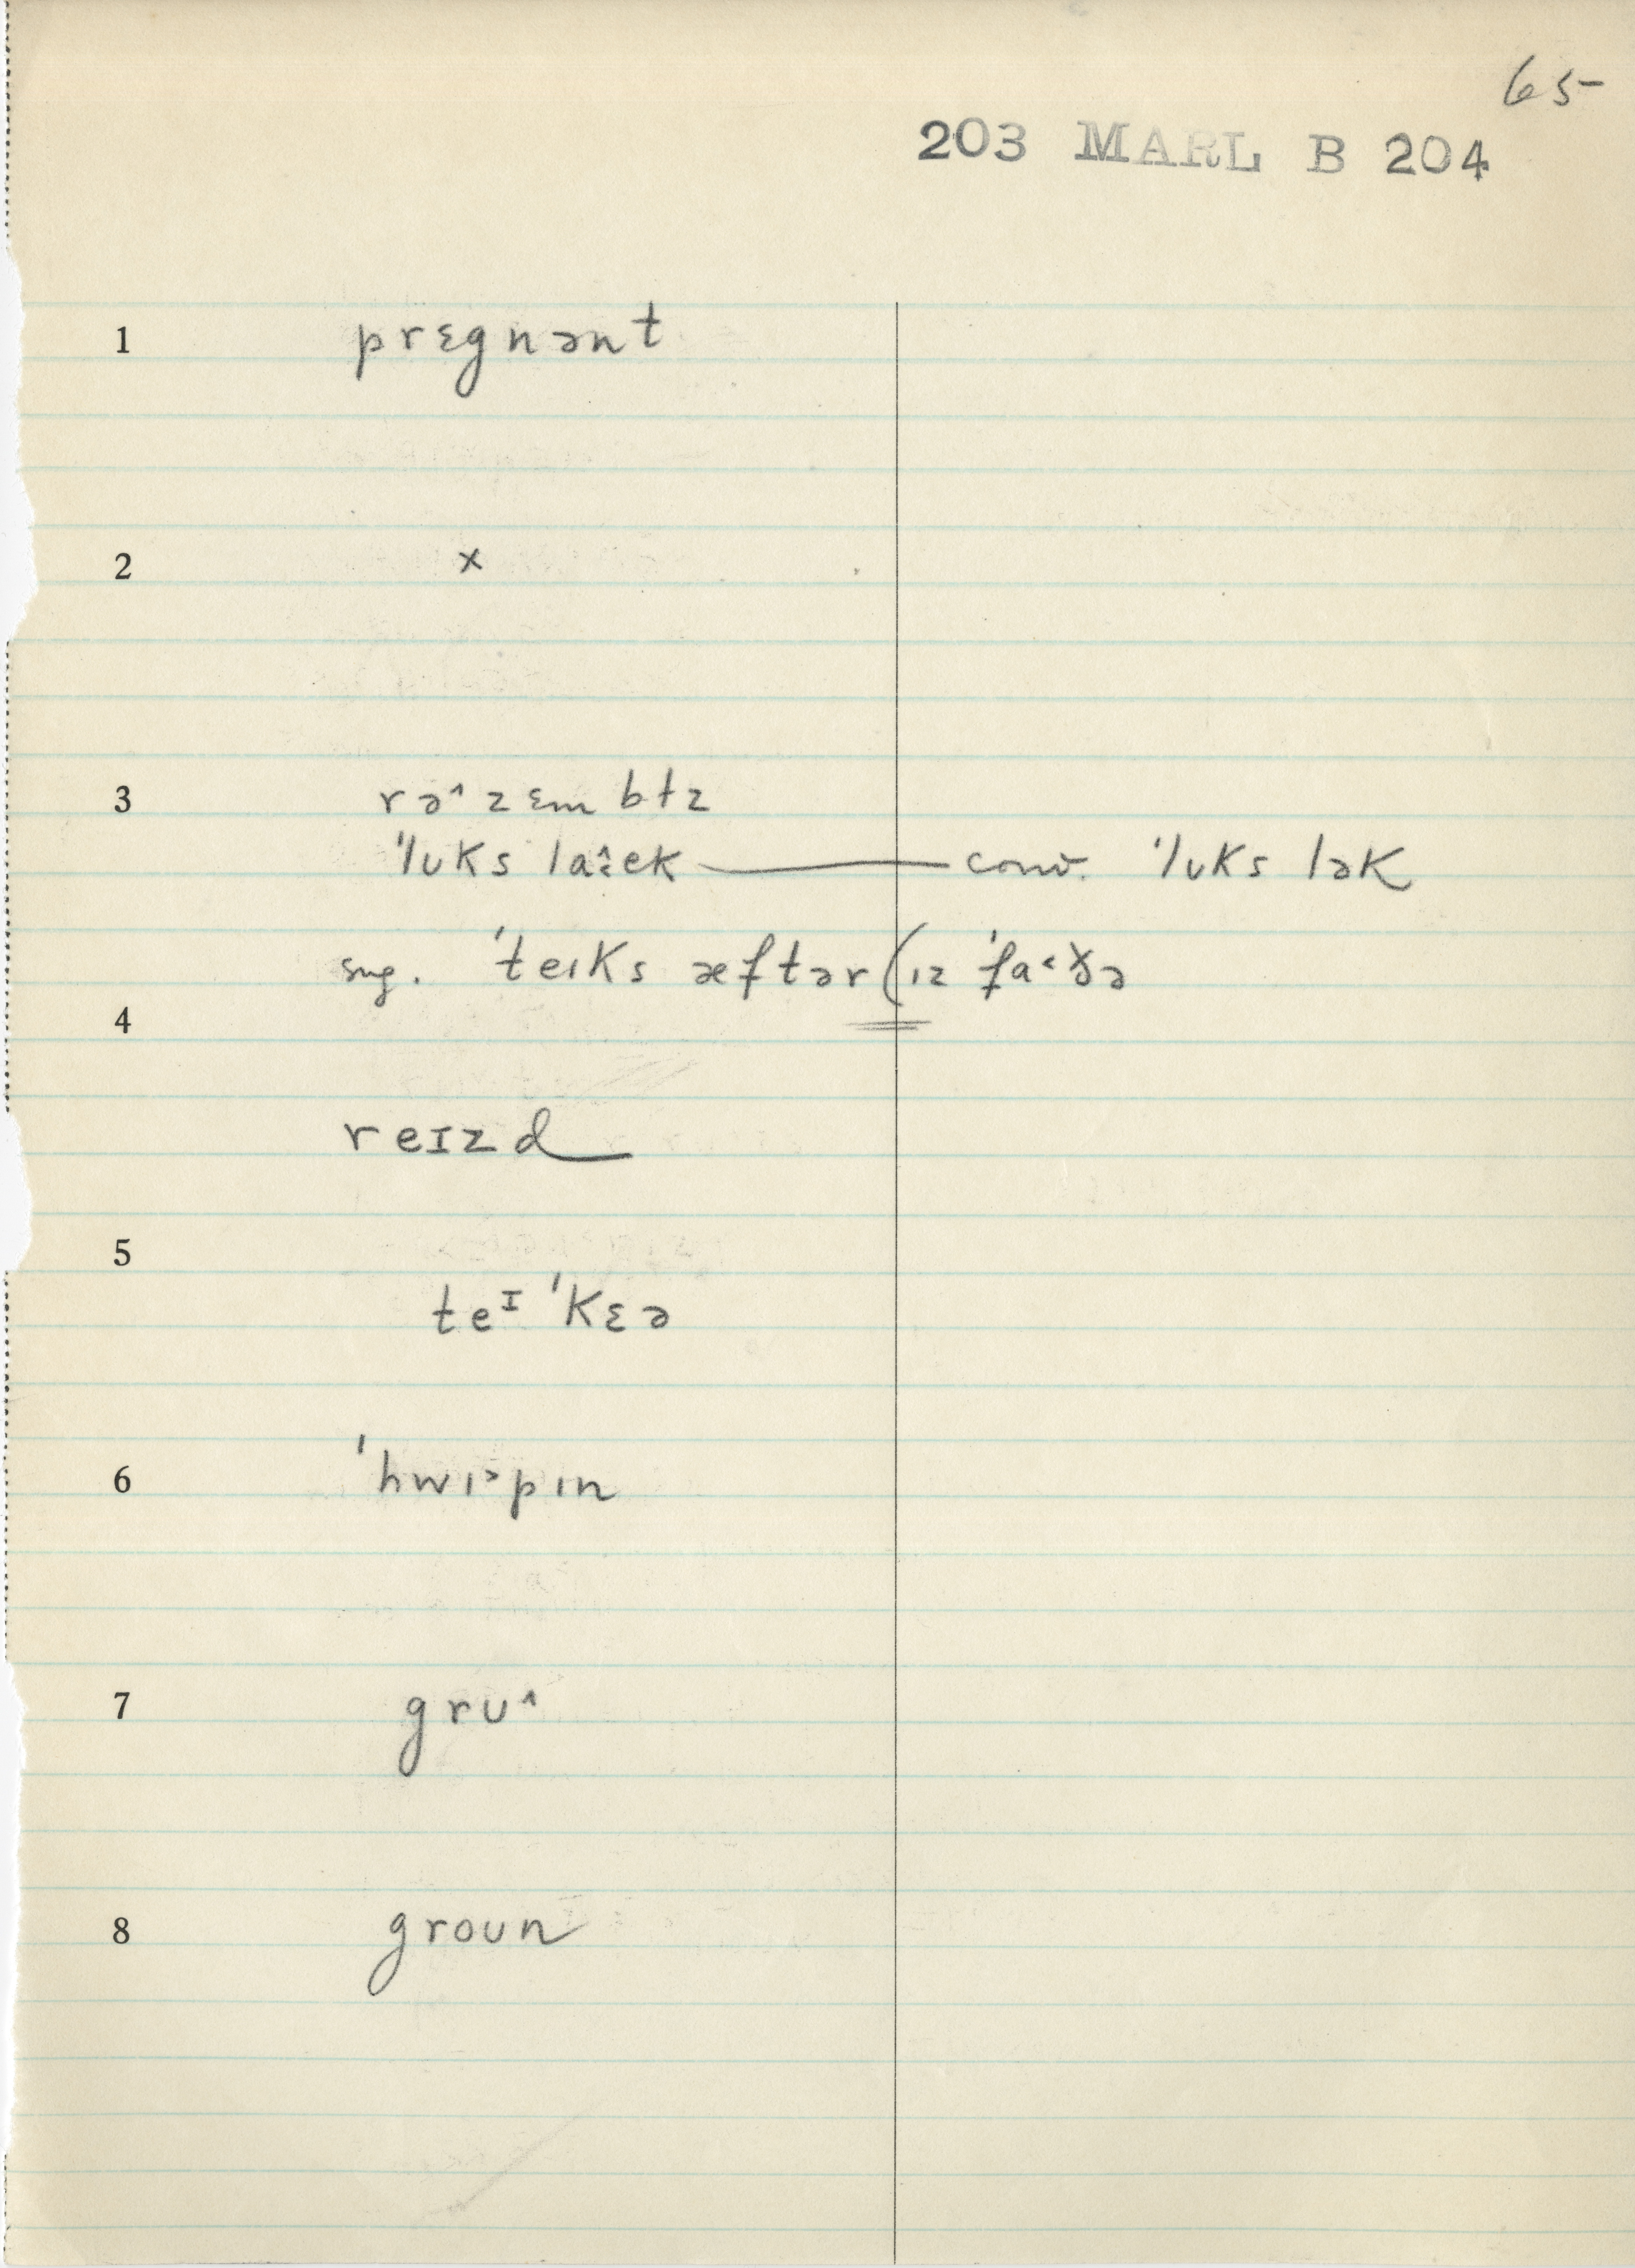 65
203 MARL B 204
1 prɛgnənt
2 x
3 rə˄zɛmbɫz
ˈlʊks laɪ̂ek — conv. ˈlʊks lək
sug. ˈteɪks æftər (ɪz ˈfa˂ðə
4
reɪzd
5
teᴵ ˈkɛə
6 ˈhwɪ˃pɪn
7 grʊ˄
8 groʊn